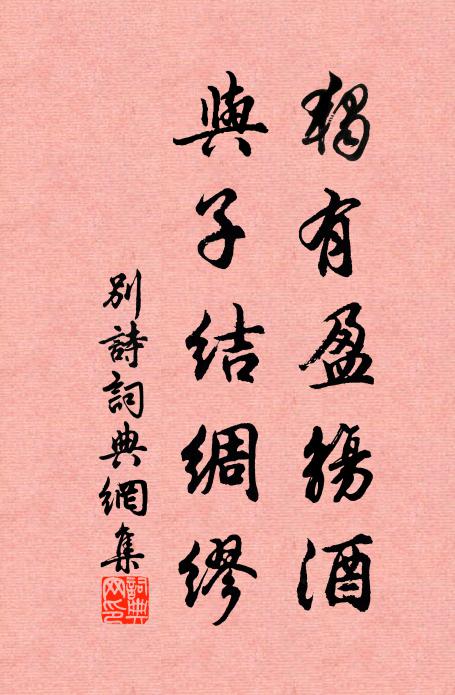 獨有盈觴酒
與子結綢繆
別詩詞典網集
詞典网印